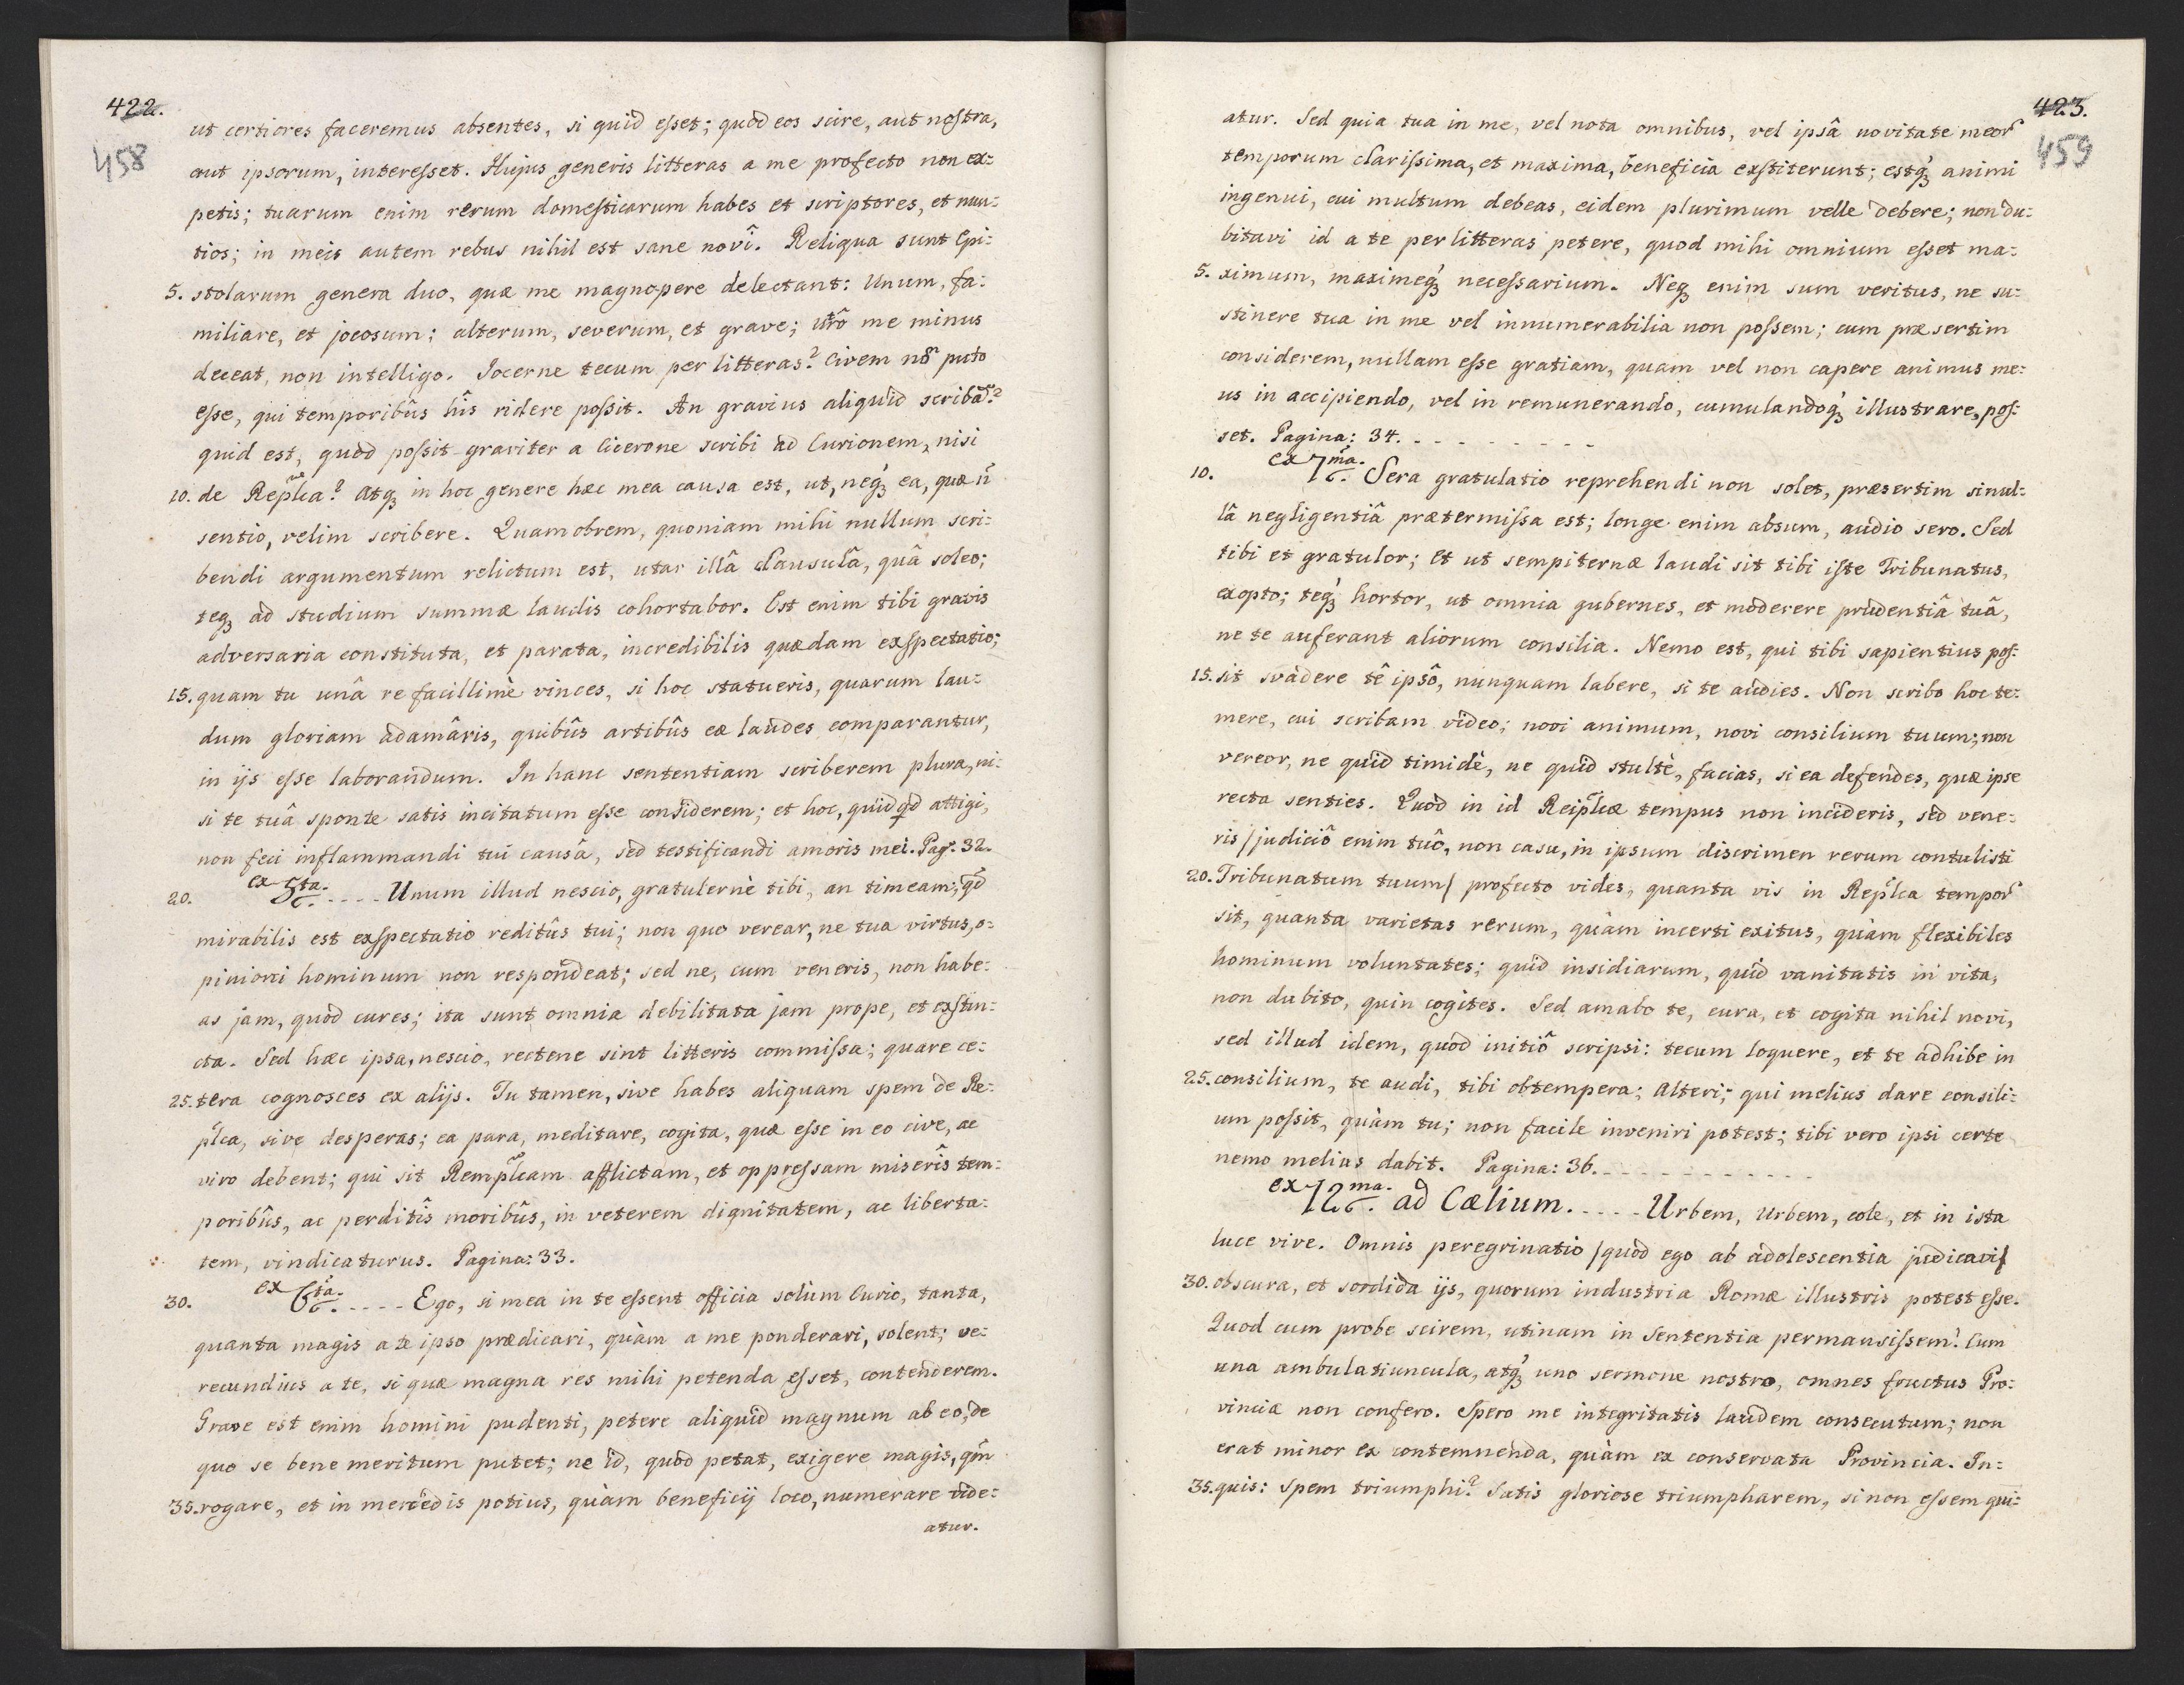 422.
458
ut certiores faceremus absentes, si quid eſset; quod eos scire, aut noſtra,
aut ipsorum, intereſset. Hujus generis litteras a me profecto non ex:
petis; tuarum enim rerum domeſticarum habes et scriptores, et nun:
tios; in meis autem rebus nihil est sane novî. Reliqua sunt Epi:
5. stolarum genera duo, quæ me magnopere delectant: Unum, fa:
miliare, et jocosum; alterum, severum, et grave; utrô me minus
deceat, non intelligo. Jocerne tecum per litteras? Civem nõ puto
eſse, qui temporibûs hîs ridere poſsit. An gravius aliquid scribã?
quid est, quod poſsit graviter a Cicerone scribi ad Curionem, nisi
10. de Rep̃lca? Atqꝫ in hoc genere hæc mea causa est, ut, neqꝫ ea, quæ ñ
sentio, velim scribere. Quamobrem, quoniam mihi nullum scri:
bendi argumentum relictum est, utar illâ Clausulâ, quâ soleo;
teqꝫ ad studium summæ laudis cohortabor. Est enim tibi gravis
adversaria constituta, et parata, incredibilis quædam exſpectatio;
15. quam tu unâ re facillimè vinces, si hoc statueris, quarum lau:
dum gloriam adamâris, quibûs artibûs eæ laudes comparantur,
in ijs eſse laborandum. In hanc sententiam scriberem plura, ni:
si te tuâ sponte satis incitatum eſse considerem; et hoc, quidqd attigi,
non feci inflammandi tui causâ, sed testificandi amoris mei. Pag: 32.
20. ex 5ta. ..... Unum illud nescio, gratulernè tibi, an timeam; qd̃
mirabilis est exſpectatio reditûs tui; non quo verear, ne tua virtus, o:
pinioni hominum non respondeat; sed ne, cum veneris, non habe:
as jam, quod cures; ita sunt omnia debilitata jam prope, et exſtin:
cta. Sed hæc ipsa, nescio, rectene sint litteris commiſsa; quare ce:
25. tera cognosces ex alijs. Tu tamen, sive habes aliquam spem de Re:
p̃lca, sive desperas; ea para, meditare, cogita, quæ esse in eo cive, ac
viro debent; qui sit Remp̃lcam afflictam, et oppreſsam miserîs tem:
poribûs, ac perditîs moribûs, in veterem dignitatem, ac liberta:
tem, vindicaturus. Pagina: 33.
30. ex 6ta. ..... Ego, si mea in te eſsent officia solùm Curio, tanta,
quanta magis a te ipso prædicari, quàm a me ponderari, solent; ve:
recundius a te, si quæ magna res mihi petenda eſset, contenderem.
Grave est enim homini pudenti, petere aliquid magnum ab eo, de
quo se bene meritum putet; ne id, quod petat, exigere magis, qm̃
35. rogare, et in mercedis potius, quàm beneficij loco, numerare vide:
atur.
423.
459
atur. Sed quia tua in me, vel nota omnibus, vel ipsâ novitate meor̃
temporum clariſsima, et maxima, beneficia exſtiterunt; estqꝫ animi
ingenui, cui multum debeas, eidem plurimum velle debere; non du:
bitavi id a te per litteras petere, quod mihi omnium eſset ma:
5. ximum, maximeqꝫ neceſsarium. Neqꝫ enim sum veritus, ne su:
stinere tua in me vel innumerabilia non poſsem; cum præsertim
considerem, nullam eſse gratiam, quam vel non capere animus me:
us in accipiendo, vel in remunerando, cumulandoqꝫ illustrare, poſ:
set. Pagina: 34. - - - - - - - - -
10. ex 7ma. Sera gratulatio reprehendi non solet, præsertim si nul:
lâ negligentiâ prætermiſsa est; longe enim absum, audio sero. Sed
tibi et gratulor; et ut sempiternæ laudi sit tibi iſte Tribunatus,
exopto; teqꝫ hortor, ut omnia gubernes, et moderere prudentiâ tuâ,
ne te auferant aliorum consilia. Nemo est, qui tibi sapientius poſ:
15. sit svadere tê ipsô, nunquam labere, si te audies. Non scribo hoc te:
mere, cui scribam video; novi animum, novi consilium tuum; non
vereor, ne quid timidè, ne quid stultè, facias, si ea defendes, quæ ipse
recta senties. Quod in id Reip̃lcæ tempus non incideris, sed vene:
ris /judiciô enim tuô, non casu, in ipsum discrimen rerum contulisti
20. Tribunatum tuum/ profecto vides, quanta vis in Rep̃lca tempor̃
sit, quanta varietas rerum, quàm incerti exitus, quàm flexibiles
hominum voluntates; quid insidiarum, quid vanitatis in vita,
non dubito, quin cogites. Sed amabo te, cura, et cogita nihil novi,
sed illud idem, quod initiô scripsi: tecum loquere, et te adhibe in
25. consilium, te audi, tibi obtempera; Alteri; qui melius dare consili:
um poſsit, quàm tu; non facile inveniri potest; tibi vero ipsi certe
nemo melius dabit. Pagina: 36. - - - - - - - - - - -
ex 12ma. ad Cælium. ..... Urbem, Urbem, cole, et in ista
luce vive. Omnis peregrinatio /quod ego ab adolescentia judicavi/
30. obscura, et sordida ijs, quorum industria Romæ illustris potest eſse.
Quod cum probe scirem, utinam in Sententia permansiſsem! Cum
una ambulatiuncula, atqꝫ uno sermone nostro, omnes fructus Pro:
vinciæ non confero. Spero me integritatis laudem consecutum; non
erat minor ex contemnenda, quàm ex conservata Provincia. In:
35. quis: Spem triumphi? Satis gloriose triumpharem, si non eſsem qui: